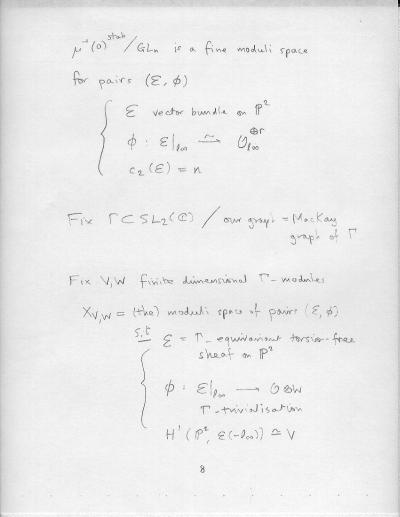 μ⁻¹(0)^stab / GLn is a fine moduli space
for pairs (ℰ, ϕ)
{ ℰ vector bundle on ℙ²
ϕ : ℰ|ℓ∞ ⥲ 𝒪ℓ∞^⊕r
c₂(ℰ) = n
Fix Γ ⊂ SL₂(ℂ) / our graph = MacKay
graph of Γ
Fix V,W finite dimensional Γ-modules
X_V,W = (the) moduli space of pairs (ℰ, ϕ)
s.t { ℰ = Γ-equivariant torsion-free
sheaf on ℙ²
ϕ : ℰ|ℓ∞ ⟶ 𝒪⊗W
Γ-trivialisation
H¹(ℙ², ℰ(-ℓ∞)) ≃ V
8